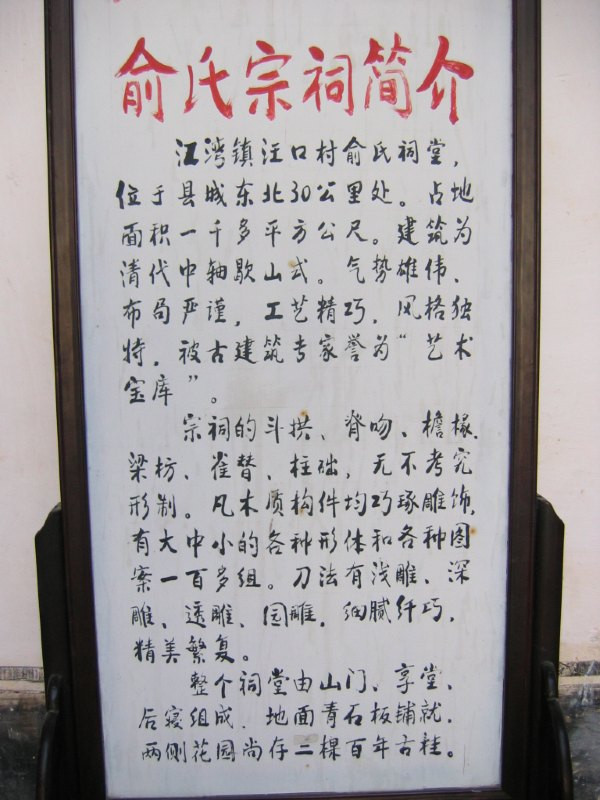 俞氏宗祠简介
江湾镇汪口村俞氏祠堂，
位于县城东北30公里处。占地
面积一千多平方公尺。建筑为
清代中轴歇山式。气势雄伟、
布局严谨，工艺精巧，风格独
特，被古建筑专家誉为“艺术
宝库”。
宗祠的斗拱、脊吻、檐椽、
梁枋、雀替、柱础，无不考究
形制。凡木质构件均巧琢雕饰，
有大中小的各种形体和各种图
案一百多组。刀法有浅雕、深
雕、透雕、园雕，细腻纤巧，
精美繁复。
整个祠堂由山门、享堂、
后寝组成，地面青石板铺就，
两侧花园尚存二棵百年古桂。